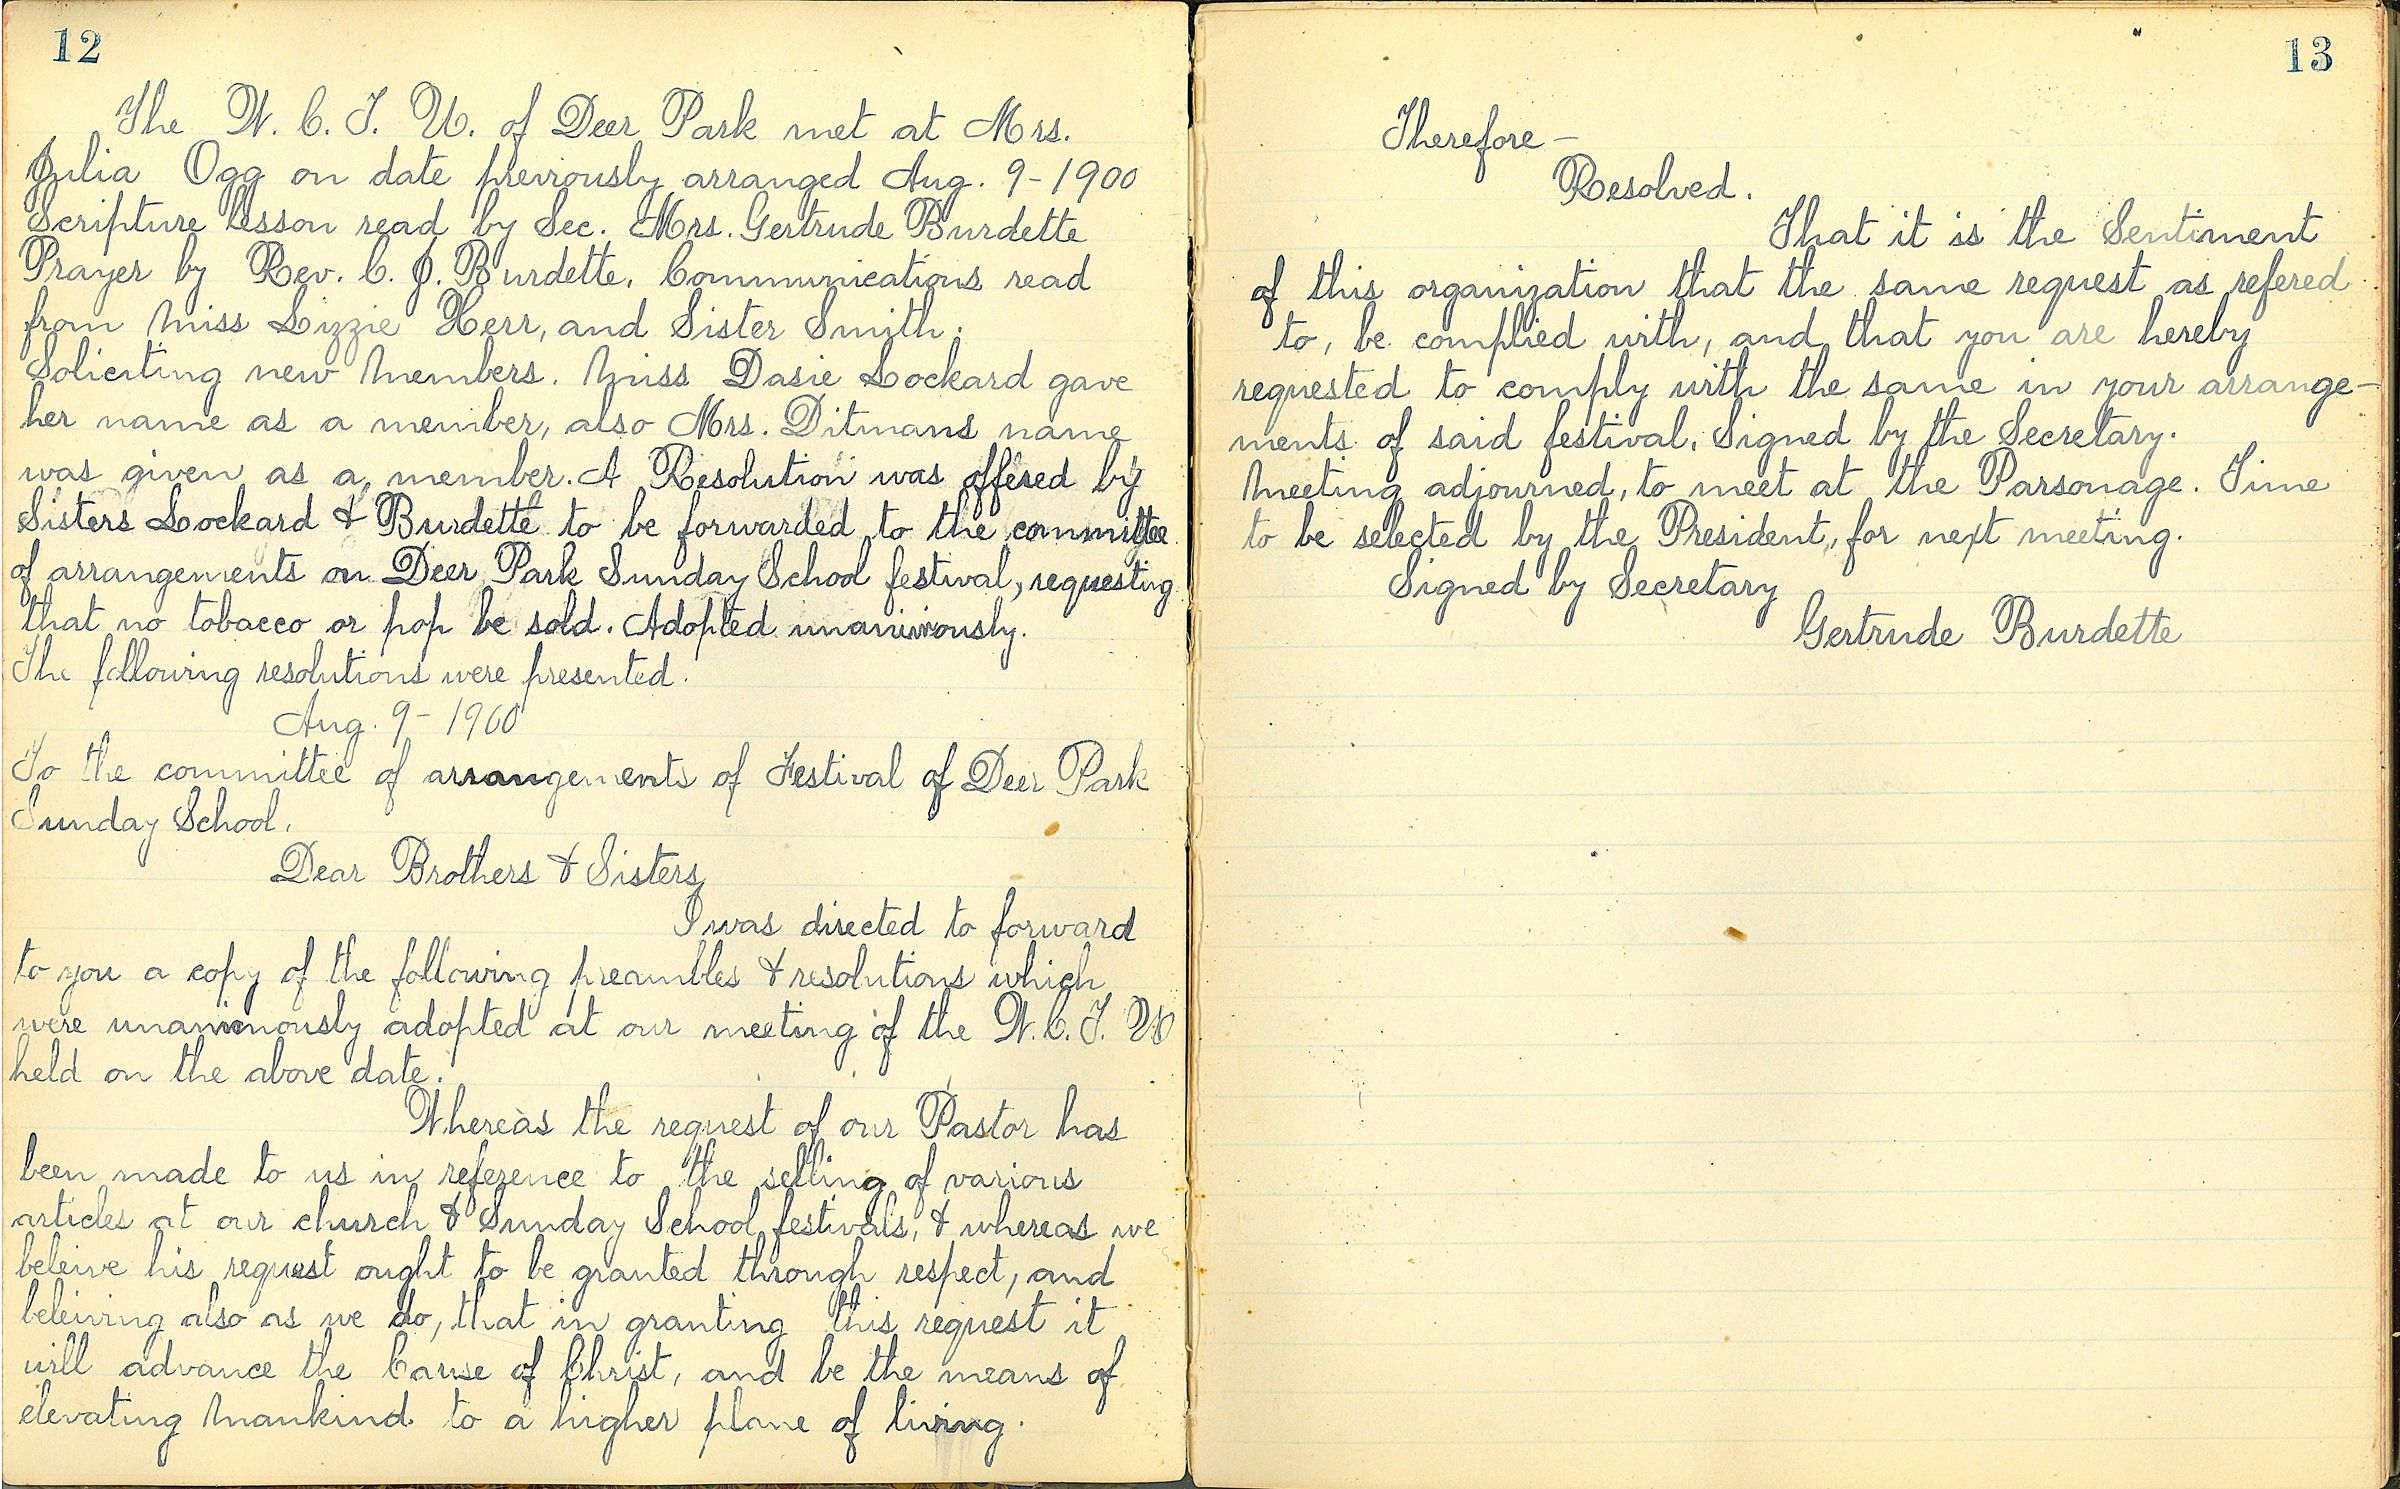 12
The W. C. T. U. of Deer Park met at Mrs.
Julia Ogg on date previously arranged Aug. 9-1900
Scripture lesson read by Sec. Mrs. Gertrude Burdette
Prayer by Rev. C. J. Burdette. Communications read
from Miss Lizzie Herr, and Sister Smith.
Soliciting new Members. Miss Dasie Lockard gave
her name as a member, also Mrs. Ditmans name
was given as a member. A Resolution was offered by
Sisters Lockard & Burdette to be forwarded to the committee
of arrangements on Deer Park Sunday School festival, requesting
that no tobacco or pop be sold. Adopted unanimously.
The following resolutions were presented.
Aug. 9-1900
To the committee of arrangements of Festival of Deer Park
Sunday School.
Dear Brothers & Sisters,
I was directed to forward
to you a copy of the following preambles & resolutions which
were unanimously adopted at our meeting of the W. C. T. U
held on the above date.
Whereas the request of our Pastor has
been made to us in reference to the selling of various
articles at our church & Sunday School festivals, & whereas we
beleive his request ought to be granted through respect, and
beleiving also as we do, that in granting this request it
will advance the Cause of Christ, and be the means of
elevating Mankind to a higher plane of living.
13
Therefore-
Resolved.
That it is the Sentiment
of this organization that the same request as refered
to, be complied with, and that you are hereby
requested to comply with the same in your arrange-
ments of said festival. Signed by the Secretary.
Meeting adjourned, to meet at the Parsonage. Time
to be selected by the President, for next meeting.
Signed by Secretary
Gertrude Burdette